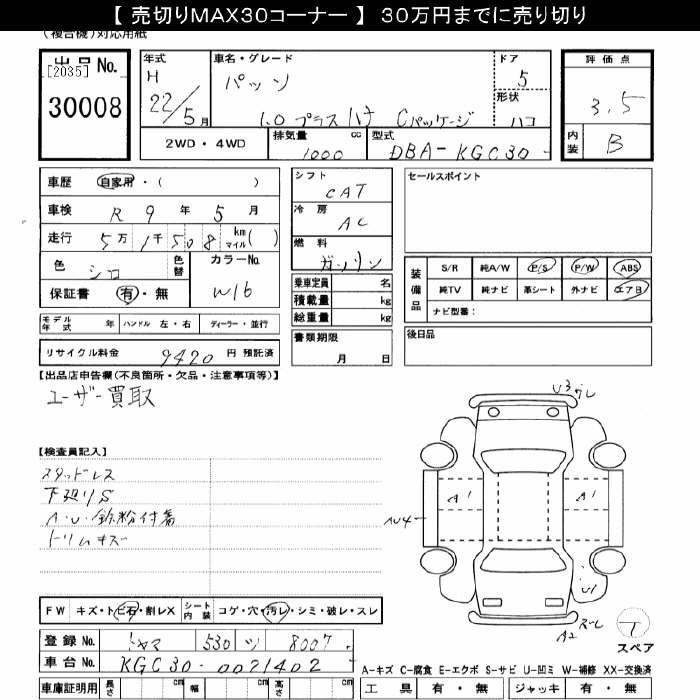 【 売切りMAX30コーナー 】 30万円までに売り切り
(複合機)対応用紙
出品 No.
[2035]
30008
年式
H
22/5月
車名・グレード
パッソ
1.0 プラスハナ Cパッケージ
ドア
5
形状
ハコ
評価点
3.5
内装
B
2WD・4WD
排気量 1000 cc
型式 DBA-KGC30
車歴 自家用・( )
車検 R 9 年 5 月
走行 5万 1千 508 km マイル( )
色 シロ 色替
カラーNo. W16
保証書 有・無
モデル年式 年 ハンドル 左・右 ディーラー・並行
リサイクル料金 9420 円 預託済
シフト
CAT
冷房
AC
燃料
ガソリン
乗車定員 名
積載量 kg
総重量 kg
書類期限
月 日
セールスポイント
装備品
S/R 純A/W P/S P/W ABS
純TV 純ナビ 革シート 外ナビ エアB
ナビ型番:
後日品
【出品店申告欄(不良箇所・欠品・注意事項等)】
ユーザー買取
【検査員記入】
スタッドレス
下廻りS
A・U・鉄粉付着
トリムキズ
U3ズレ
A1
A1
AU4
U1
A2 ズレ
T
スペア
FW キズ・トビ石・割レX シート内装 コゲ・穴・汚レ・シミ・破レ・スレ
登録 No. トヤマ 530 ツ 8007
車台 No. KGC30-0021402
A-キズ C-腐食 E-エクボ S-サビ U-凹ミ W-補修 XX-交換済
車庫証明用 長さ cm 幅 cm 高さ cm
工具 有・無 ジャッキ 有・無